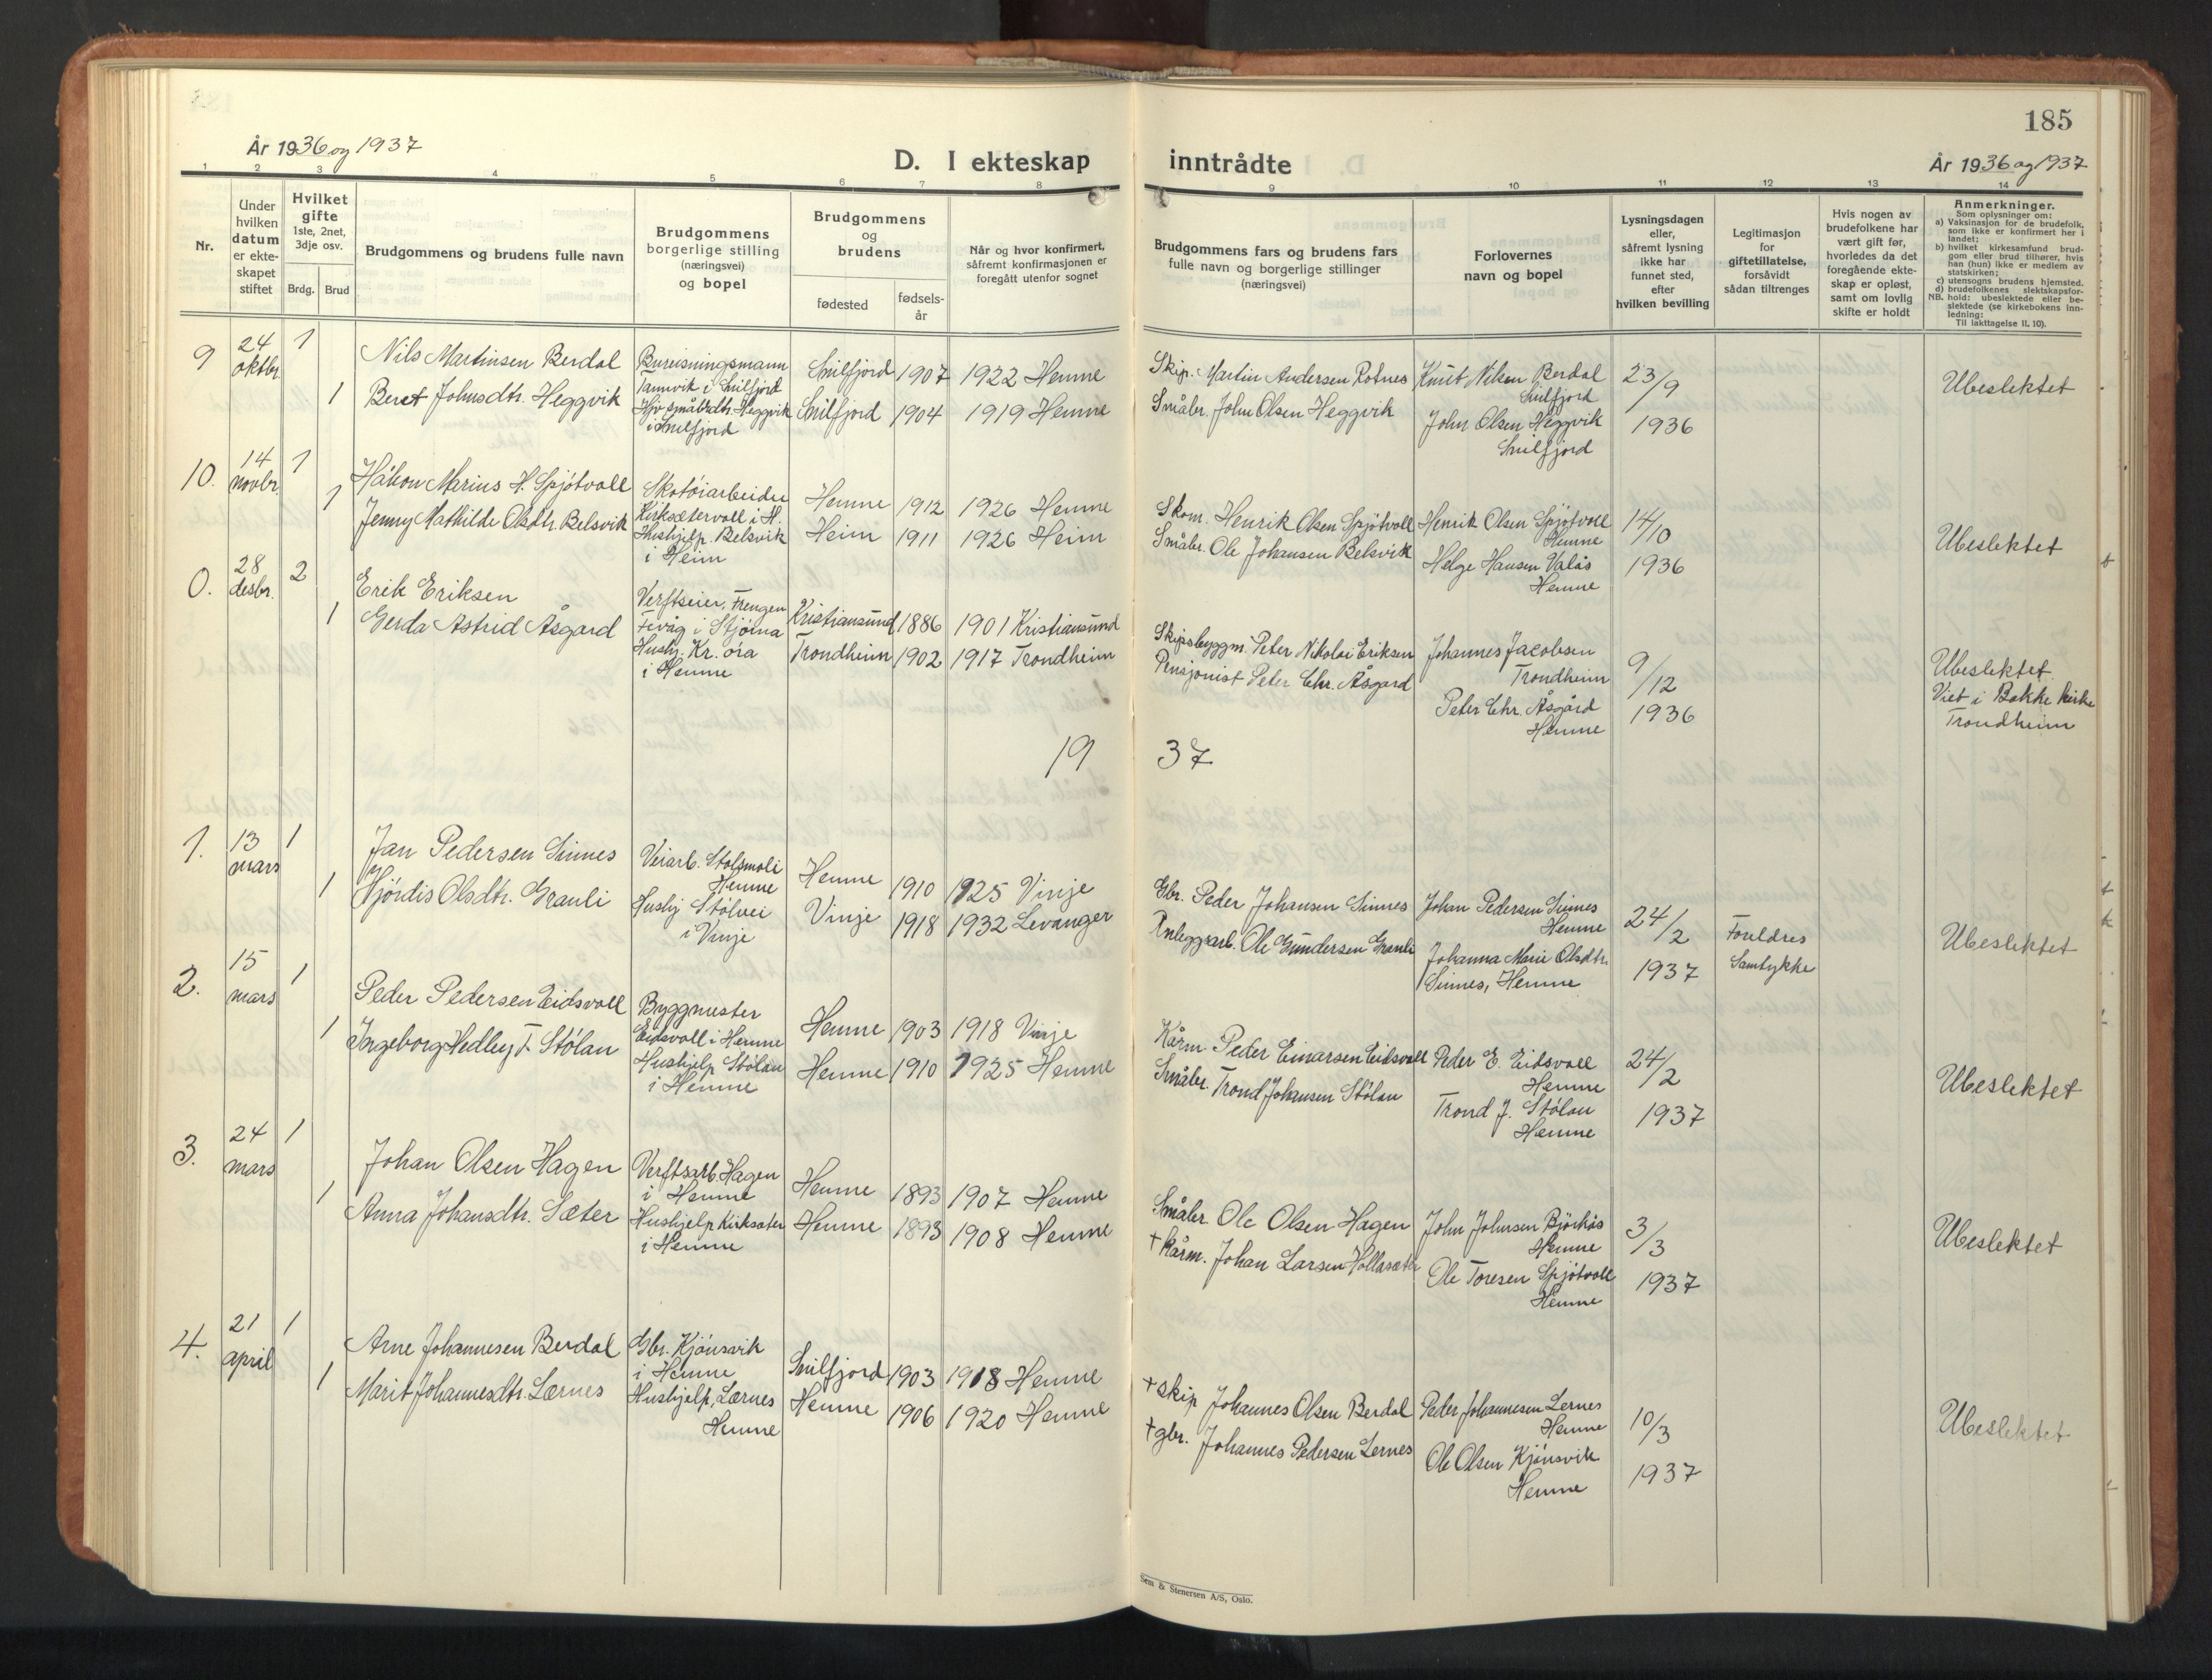 185
År 1936 og 1937
D. I ekteskap inntrådte
År 1936 og 1937
1 2 3 4 5 6 7 8 9 10 11 12 13 14
Nr.
Under hvilken datum er ekte- skapet stiftet
Hvilket gifte 1ste, 2net, 3dje osv.
Brdg. Brud
Brudgommens og brudens fulle navn
Brudgommens borgerlige stilling (næringsvei) og bopel
Brudgommens og brudens
fødested
fødsels- år
Når og hvor konfirmert, såfremt konfirmasjonen er foregått utenfor sognet
Brudgommens fars og brudens fars fulle navn og borgerlige stillinger (næringsvei)
Forlovernes navn og bopel
Lysningsdagen eller, såfremt lysning ikke har funnet sted, efter hvilken bevilling
Legitimasjon for giftetillatelse, forsåvidt sådan tiltrenges
Hvis nogen av brudefolkene har vært gift før, hvorledes da det foregående ekte- skap er opløst, samt om lovlig skifte er holdt
Anmerkninger.
Som oplysninger om:
a) Vaksinasjon for de brudefolk, som ikke er konfirmert her i landet;
b) hvilket kirkesamfund brud- gom eller brud tilhører, hvis han (hun) ikke er medlem av statskirken;
c) utensogns brudens hjemsted.
d) brudefolkenes slektskapsfor-
NB. hold: ubeslektede eller be- slektede (se kirkebokens inn- ledning:
Til iakttagelse II. 10).
9 24 oktbr. 1
Nils Martinsen Berdal
Bureisningsmann Tannvik i Snilfjord
Snilfjord 1907 1922 Hemne
Skip. Martin Andersen Rotnes
Knut Nilsen Berdal Snilfjord
23/9 1936
Ubeslektet
1 Beret Johnsdtr. Heggvik
Hjv. småbrdtr. Heggvik i Snilfjord
Snilfjord 1904 1919 Hemne
Småbr. John Olsen Heggvik
John Olsen Heggvik Snilfjord
10. 14 novbr. 1
Håkon Marius H. Spjøtvoll
Skotøiarbeider Kirksætervoll i H.
Hemne 1912 1926 Hemne
Skom. Henrik Olsen Spjøtvoll
Henrik Olsen Spjøtvoll Hemne
14/10 1936
Ubeslektet
1 Jenny Mathilde Olsdtr. Belsvik
Hushjelp. Belsvik i Heim
Heim 1911 1926 Heim
Småbr. Ole Johansen Belsvik
Helge Hansen Valås Hemne
0. 28 desbr. 2
Erik Eriksen
Verftseier, Frengen Fevåg i Stjørna
Kristiansund 1886 1901 Kristiansund
Skipsbyggm. Peter Nikolai Eriksen
Johannes Jacobsen Trondheim
9/12 1936
Ubeslektet.
Viet i Bakke kirke Trondheim
1 Gerda Astrid Åsgard
Hushj. Kr. øra i Hemne
Trondheim 1902 1917 Trondheim
Pensjonist Peter Chr. Åsgard
Peter Chr. Åsgård Hemne
1937
1. 13 mars 1
Jan Pedersen Sinnes
Veiarb. Stolsmoli Hemne
Hemne 1910 1925 Vinje
Gbr. Peder Johansen Sinnes
Johan Pedersen Sinnes Hemne
24/2 1937
Foreldres Samtykke
Ubeslektet
1 Hjørdis Olsdtr. Granli
Hushj Stølvei i Vinje
Vinje 1918 1932 Levanger
Anleggsarb. Ole Gundersen Granli
Johanna Marie Olsdtr. Sinnes, Hemne
2. 15 mars 1
Peder Pedersen Eidsvoll
Byggmester Eidsvoll i Hemne
Hemne 1903 1918 Vinje
Kårm Peder Einarsen Eidsvoll
Peder E. Eidsvoll Hemne
24/2 1937
Ubeslektet
1 Ingeborg Hedley T. Stølan
Hushjelp Stølan i Hemne
Hemne 1910 1925 Hemne
Småbr. Trond Johansen Stølan
Trond J. Stølan Hemne
3. 24 mars 1
Johan Olsen Hagen
Verftsarb. Hagen i Hemne
Hemne 1893 1907 Hemne
Småbr. Ole Olsen Hagen
John Johnsen Bjørkås Hemne
3/3 1937
Ubeslektet
1 Anna Johansdtr. Sæter
Hushjelp Kirksæter i Hemne
Hemne 1893 1908 Hemne
+ Kårm. Johan Larsen Hollasæter
Ole Toresen Spjøtvoll Hemne
4. 21 april 1
Arne Johannesen Berdal
Gbr. Kjønsvik i Hemne
Snilfjord 1903 1918 Hemne
+ skip Johannes Olsen Berdal
Peder Johannesen Lernes Hemne
10/3 1937
Ubeslektet
1 Marit Johannesdtr. Lærnes
Hushjelp, Lærnes Hemne
Hemne 1906 1920 Hemne
+ gbr. Johannes Pedersen Lernes
Ole Olsen Kjønsvik Hemne
Sem & Stenersen A/S, Oslo.